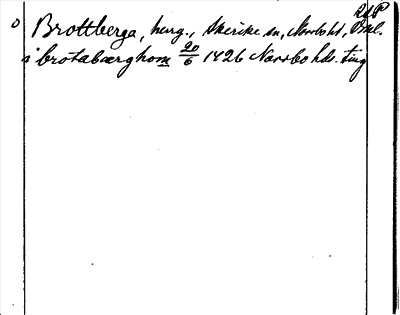 RAP
o Brottberga, herg., Skerike sn, Norrbo hd, Vstml.
i brotabærghom 20/6 1426 Norrbo hds. ting